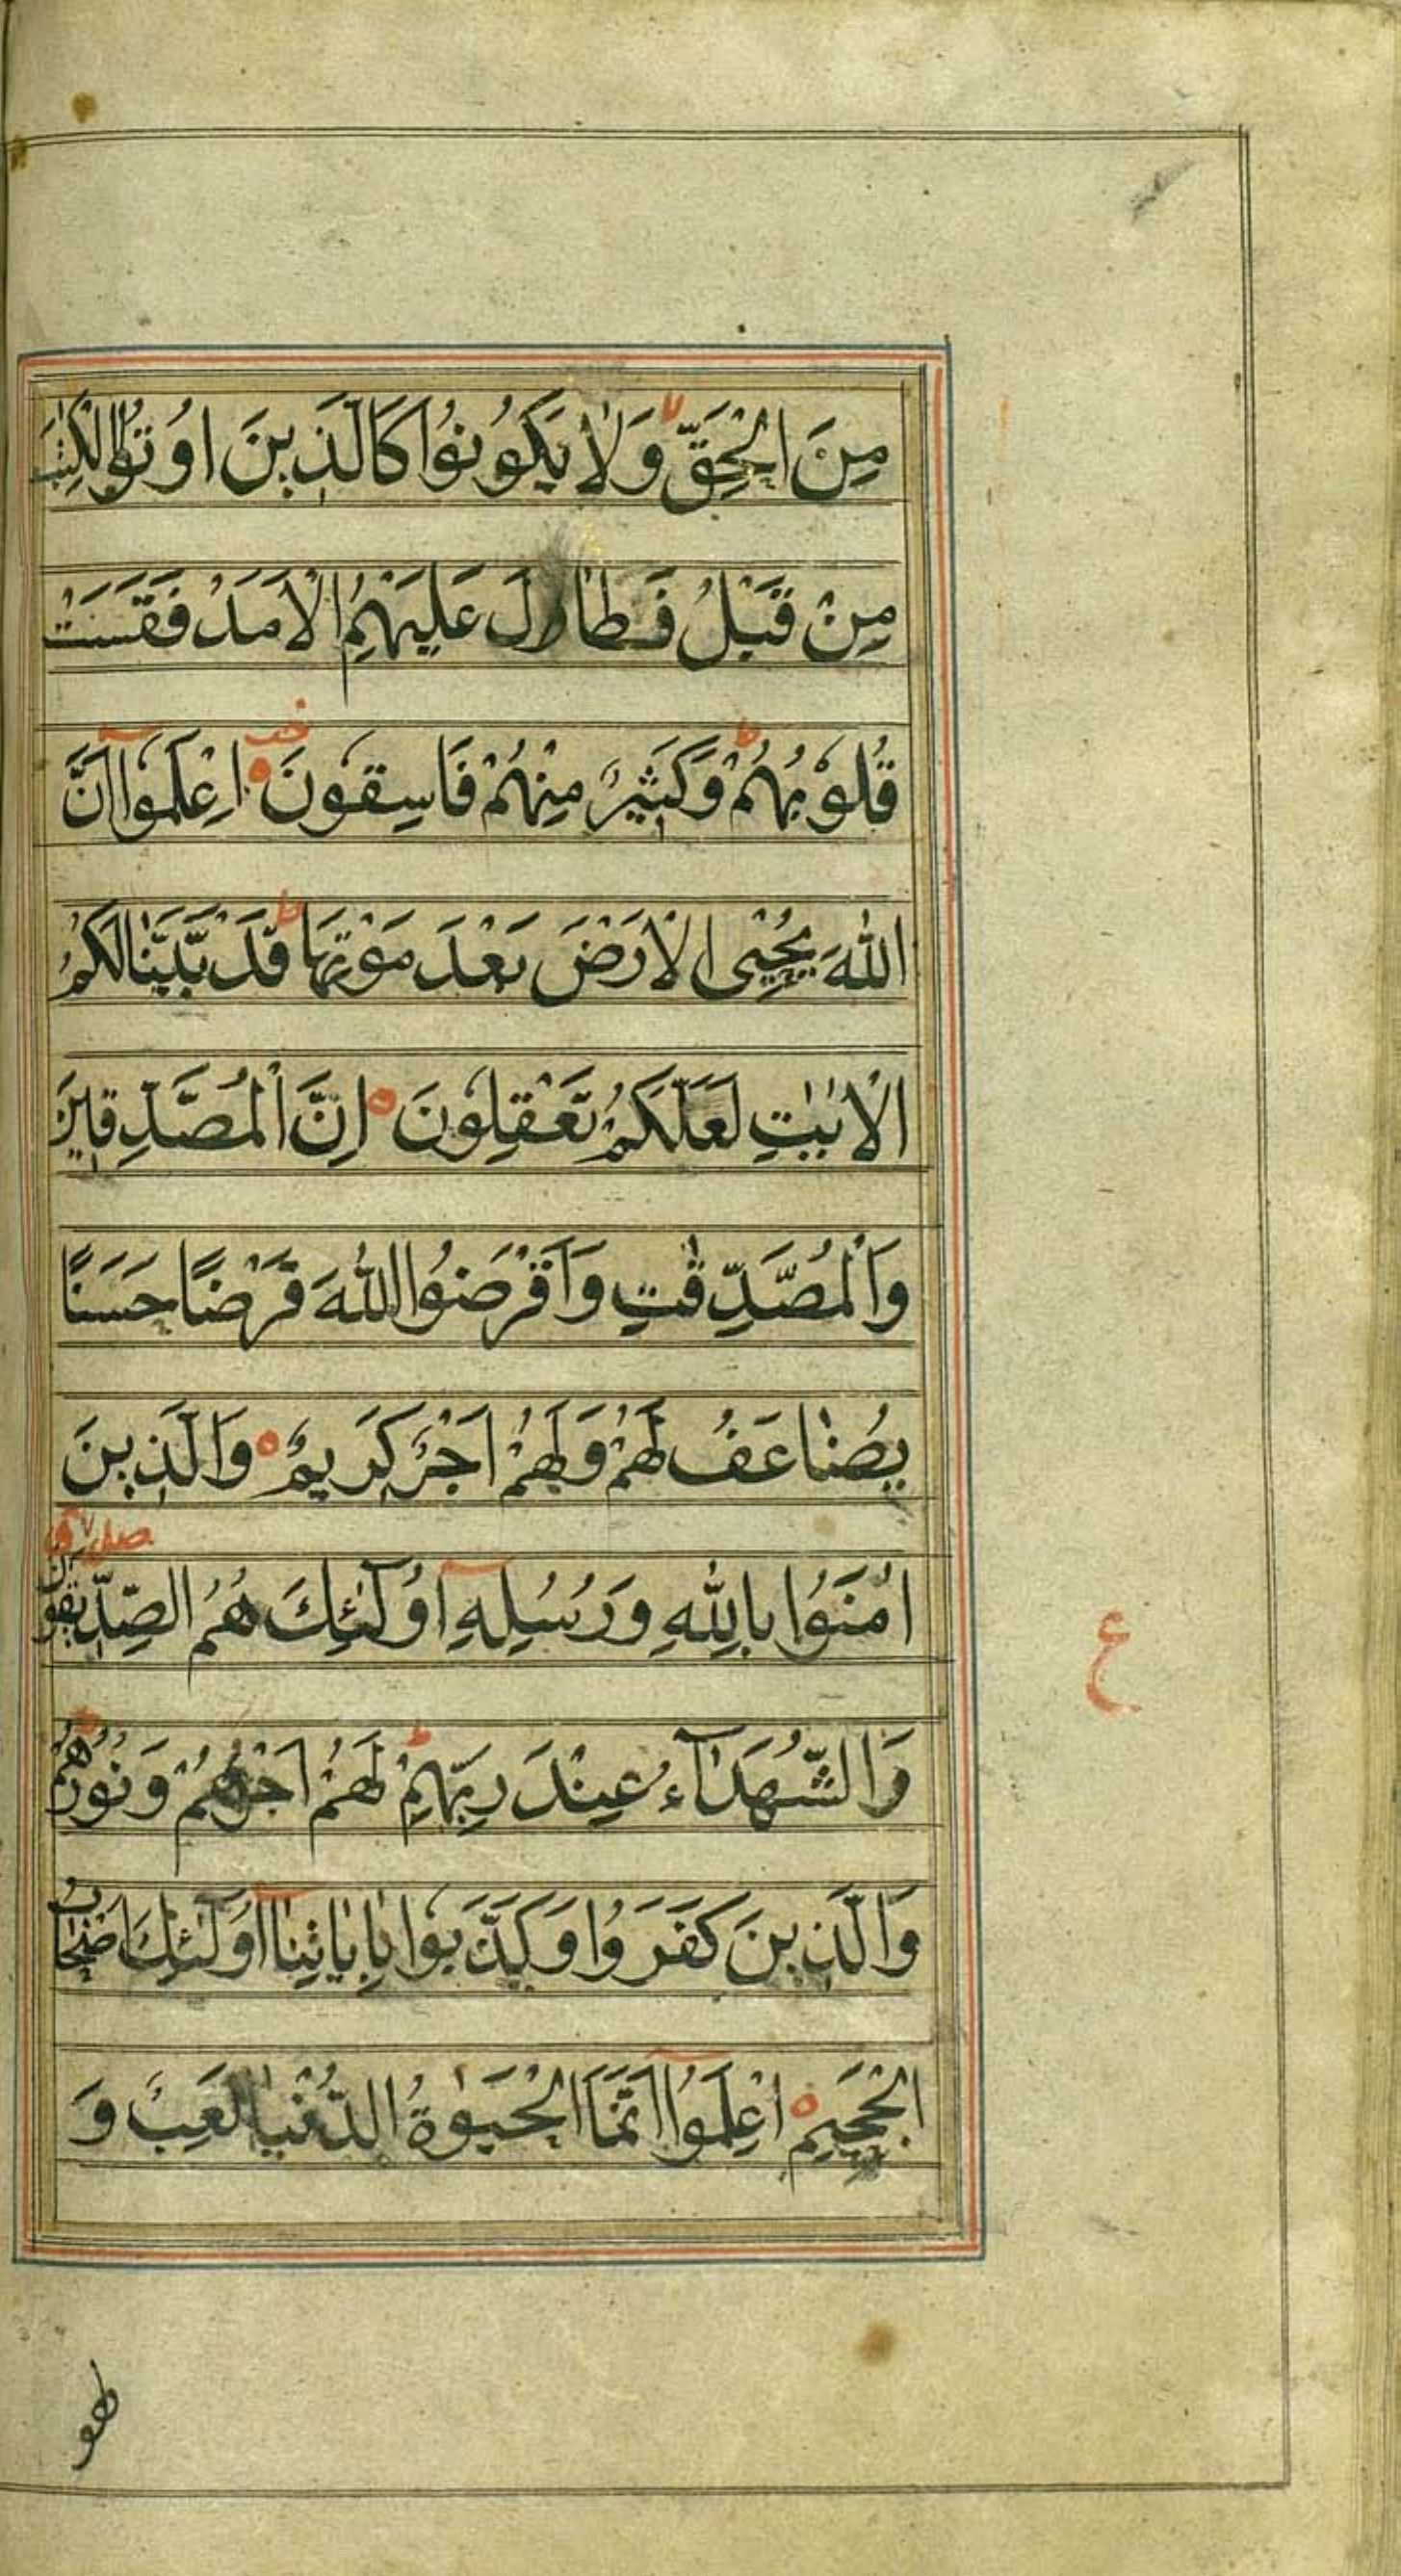 مِنَ الْحَقِّ وَلَا يَكُونُوا كَالَّذِينَ اُوتُوا الْكِتٰبَ
مِنْ قَبْلُ فَطَالَ عَلَيْهِمُ الْاَمَدُ فَقَسَتْ
قُلُوبُهُمْ وَكَثِيرٌ مِنْهُمْ فَاسِقُونَ اِعْلَمُوا اَنَّ
اللّٰهَ يُحْيِى الْاَرْضَ بَعْدَ مَوْتِهَا قَدْ بَيَّنَّا لَكُمُ
الْاٰيٰتِ لَعَلَّكُمْ تَعْقِلُونَ اِنَّ الْمُصَّدِّقِينَ
وَالْمُصَّدِّقٰتِ وَاَقْرَضُوا اللّٰهَ قَرْضًا حَسَنًا
يُضَاعَفُ لَهُمْ وَلَهُمْ اَجْرٌ كَرِيمٌ وَالَّذِينَ
اٰمَنُوا بِاللّٰهِ وَرُسُلِهِ اُولٰئِكَ هُمُ الصِّدِّيقُونَ
صلے ق
ع
وَالشُّهَدَآءُ عِنْدَ رَبِّهِمْ لَهُمْ اَجْرُهُمْ وَنُورُهُمْ
وَالَّذِينَ كَفَرُوا وَكَذَّبُوا بِاٰيَاتِنَا اُولٰئِكَ اَصْحَابُ
الْجَحِيمِ اِعْلَمُوا اَنَّمَا الْحَيٰوةُ الدُّنْيَا لَعِبٌ وَ
لهو